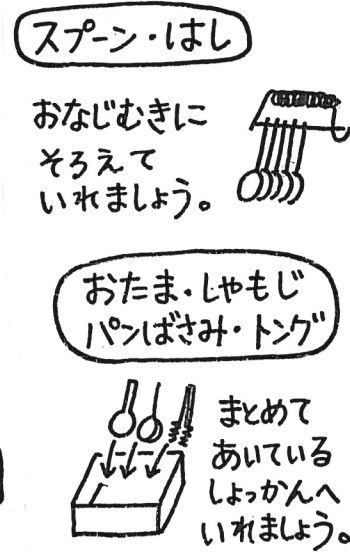 スプーン・はし
おなじむきに
そろえて
いれましょう。
おたま・しゃもじ
パンばさみ・トング
まとめて
あいている
しょっかんへ
いれましょう。